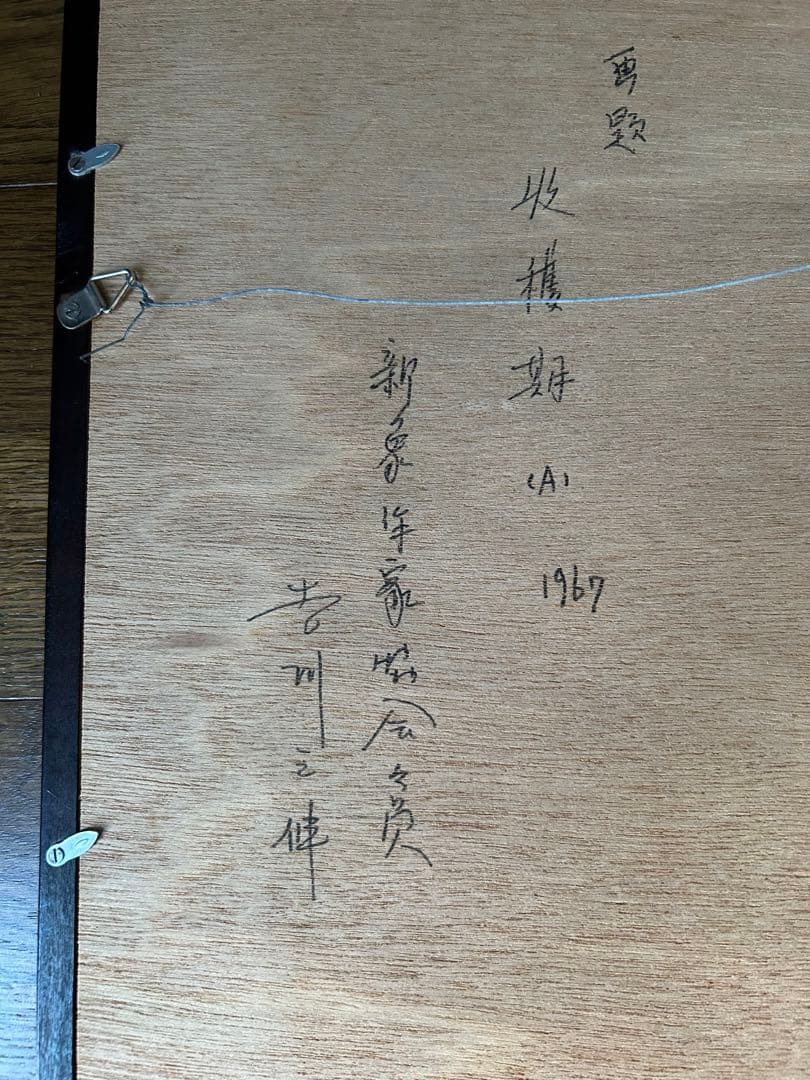 画題
収穫期 (A) 1967
新象作家協会々員
吉川三伸